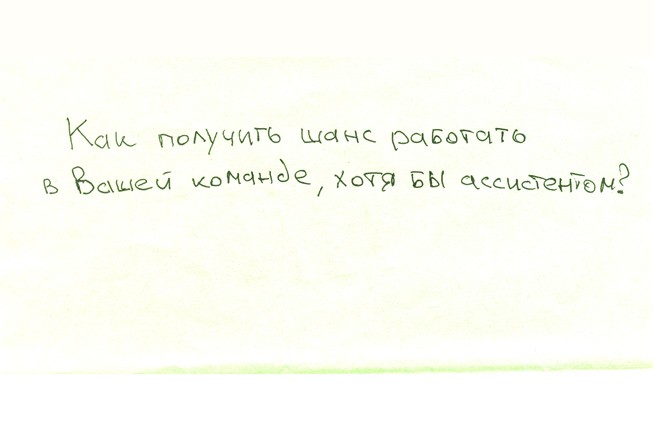 Как получить шанс работать
в Вашей команде, хотя бы ассистентом?